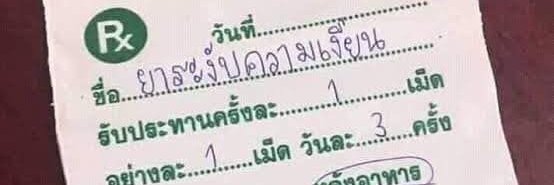 Rx วันที่
ชื่อ ยาระงับความเงี่ยน
รับประทานครั้งละ 1 เม็ด
อย่างละ 1 เม็ด วันละ 3 ครั้ง
อาหาร